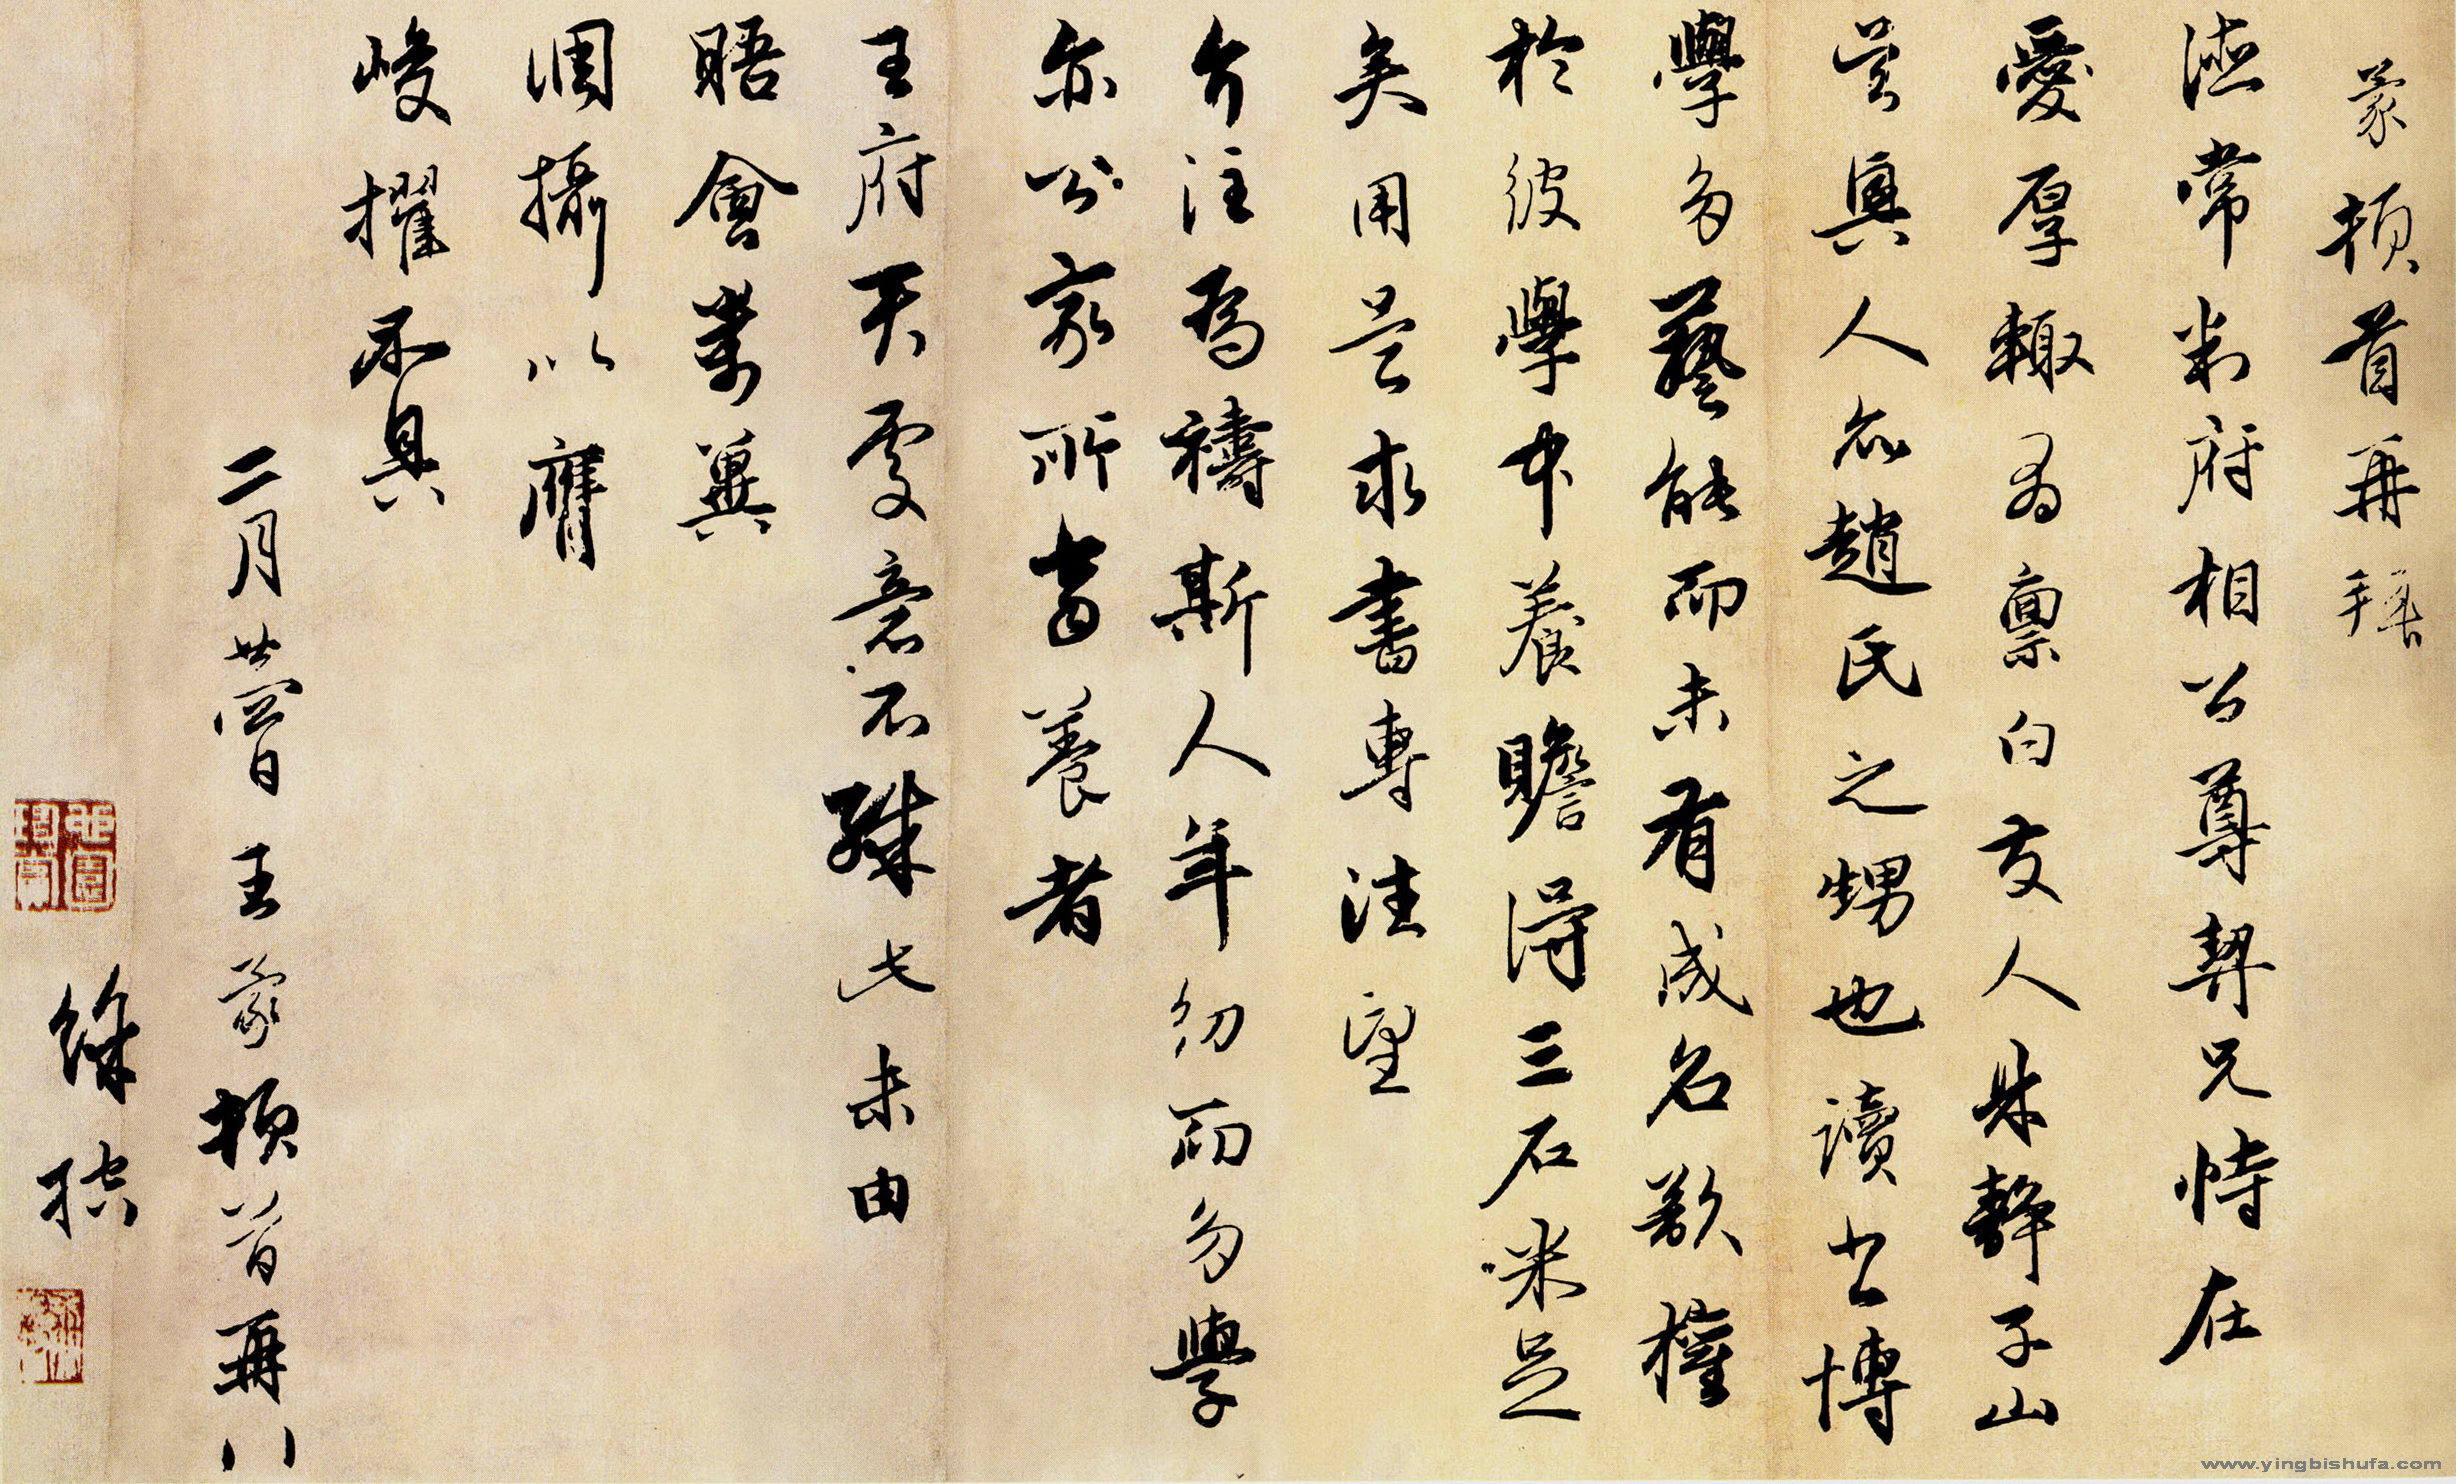 蒙頓首再拜
德常判府相公尊契兄恃在
愛厚輒為稟白友人具靜子山
吳興人亦趙氏之甥也讀書博
學多藝能而未有成名欲權
於彼學中養贍得三石米足
矣用是求書專注望
介注為禱斯人年幼而多學
亦公家所當養者
王府尹處意不殊此未由
晤會萬冀
調攝以膺
峻擢不具
二月廿四日王蒙頓首再拜
www.yingbishufa.com